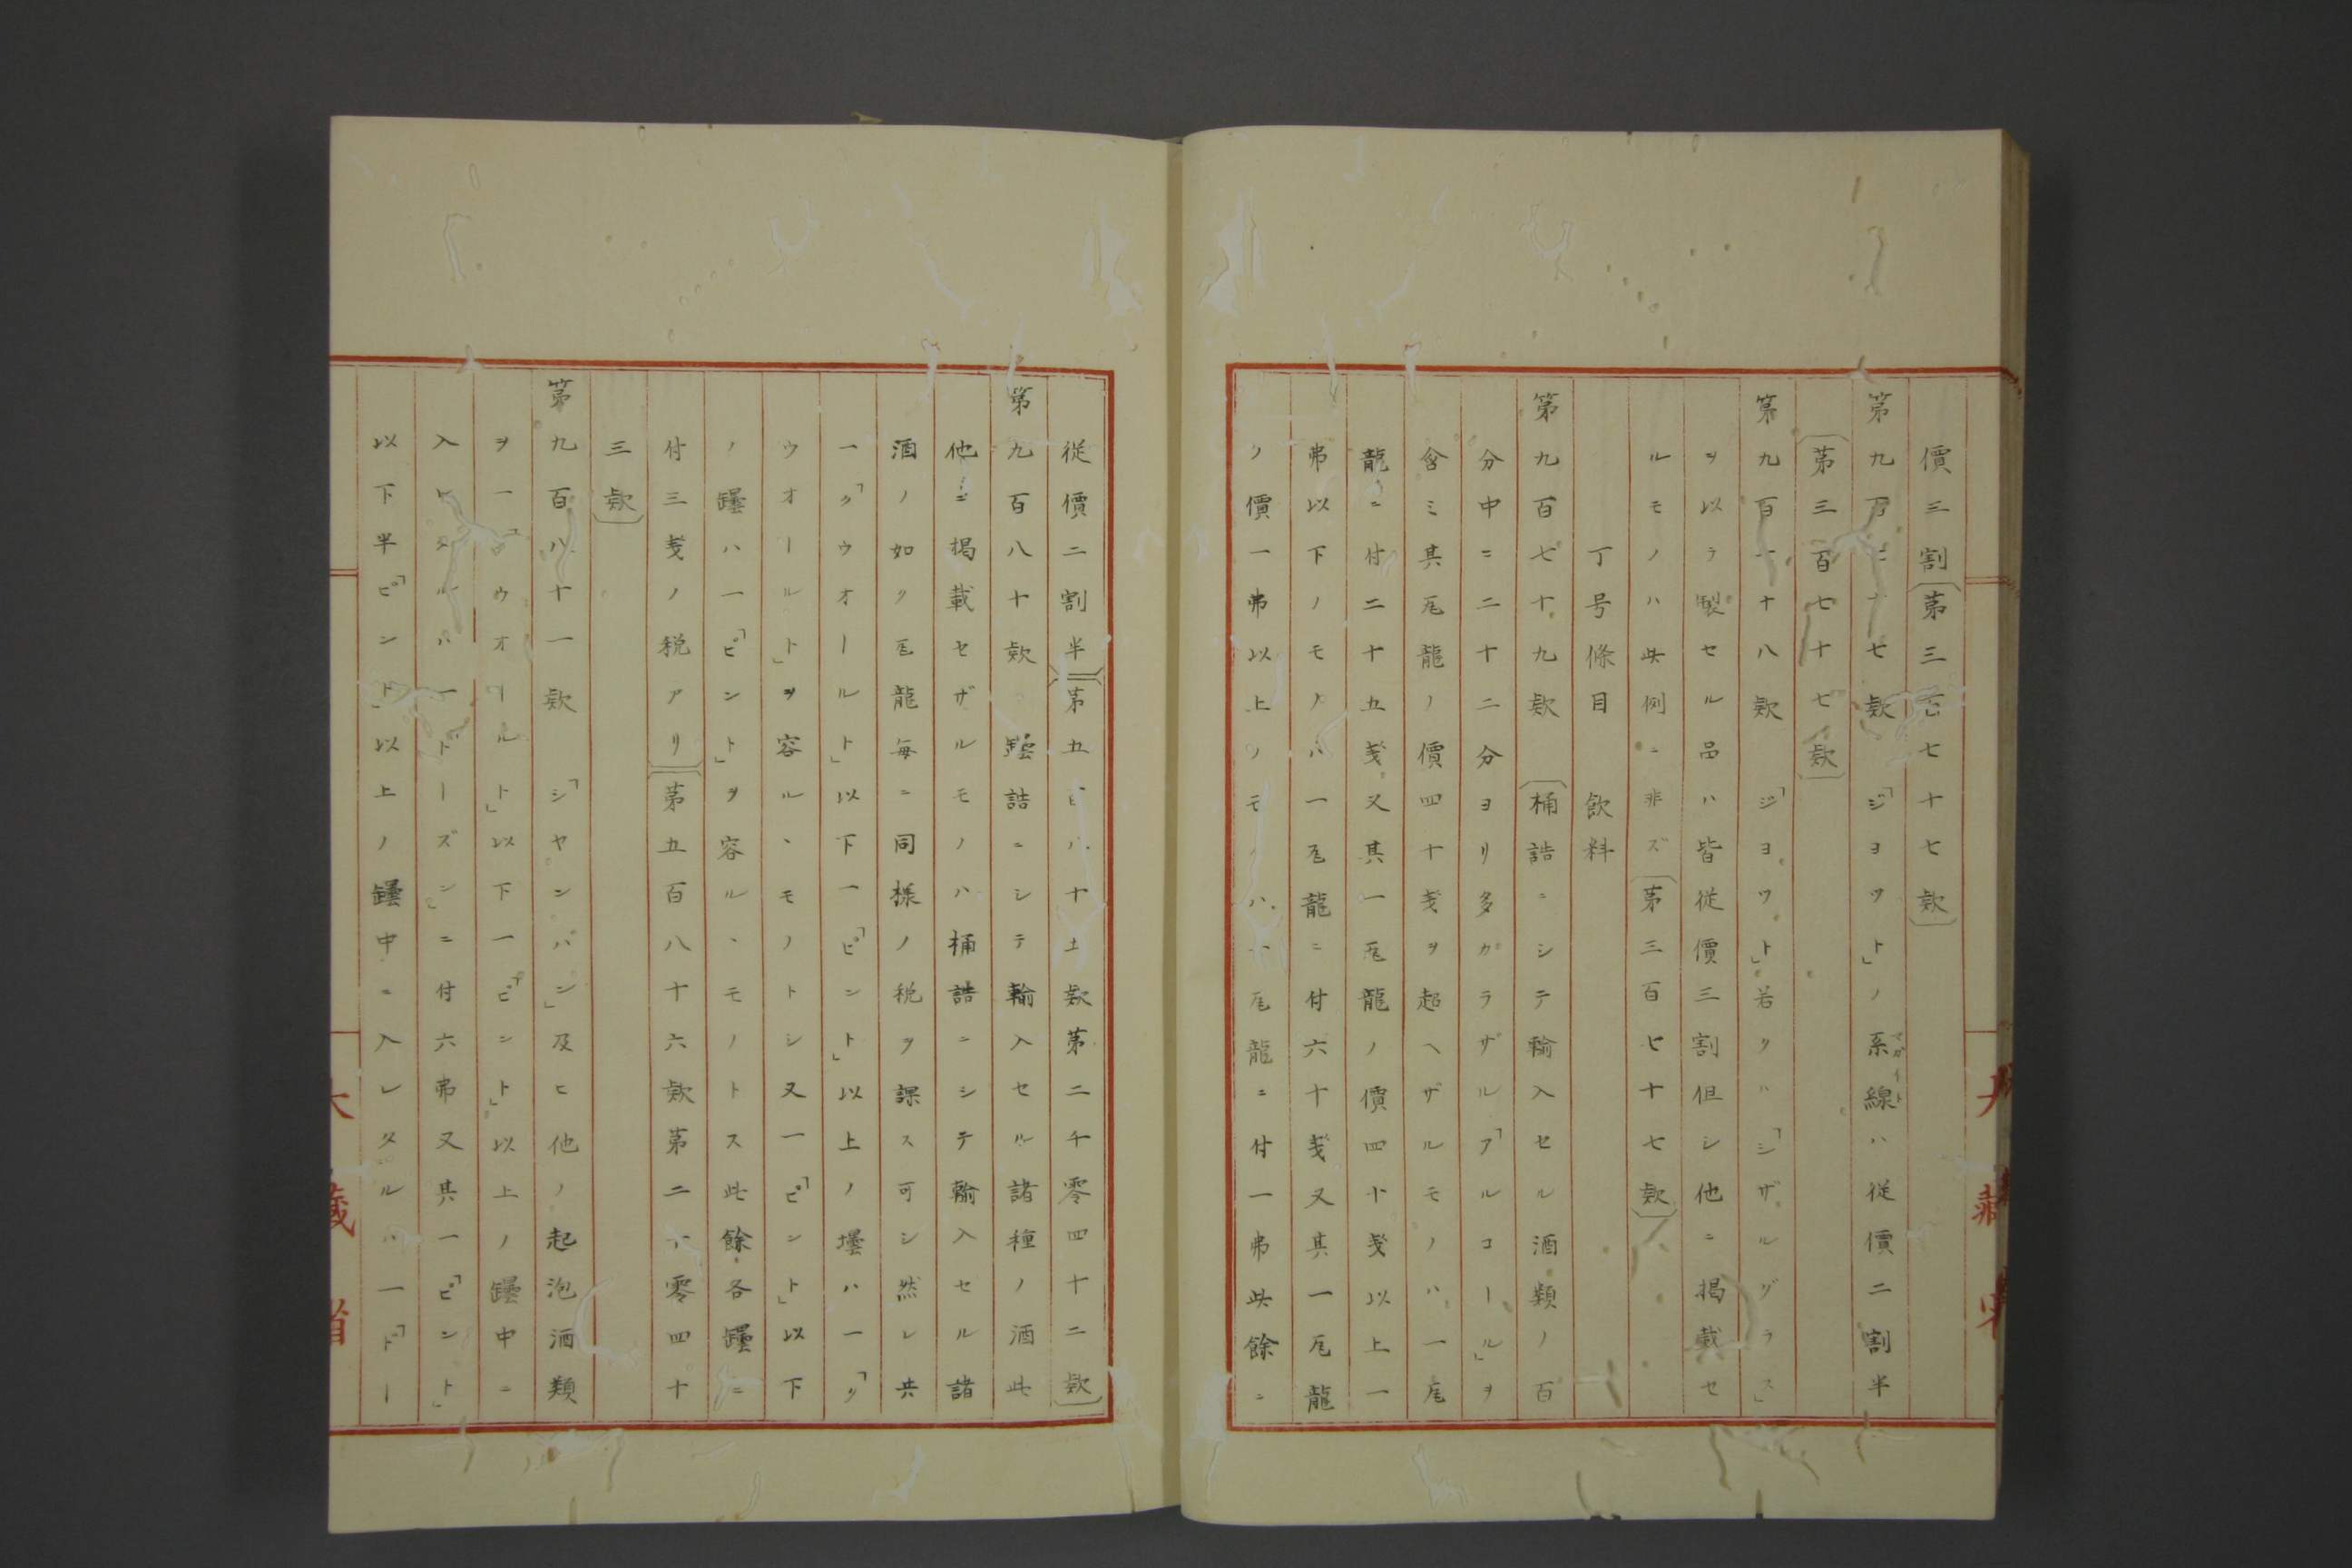 價三割〔第三百七十七欵〕
第九百七十七欵　「ジヨツト」ノ系線ハ従價二割半
マガイト
〔第三百七十七欵〕
第九百七十八欵　「ジヨツト」若クハ「シザルグラス」
ヲ以テ製セル品ハ皆従價三割但シ他ニ掲載セ
ルモノハ此例ニ非ズ〔第三百七十七欵〕
丁号條目　飲料
第九百七十九欵〔桶詰ニシテ輸入セル酒類ノ百
分中ニ二十二分ヨリ多カラザル「アルコール」ヲ
含ミ其瓦龍ノ價四十戔ヲ超ヘザルモノハ一瓦
龍ニ付二十五戔又其一瓦龍ノ價四十戔以上一
弗以下ノモノハ一瓦龍ニ付六十戔又其一瓦龍
ノ價一弗以上ノモノハ一瓦龍ニ付一弗此餘ニ
従價二割半〕〔第五百八十五欵第二千零四十二欵〕
第九百八十欵　罎詰ニシテ輸入セル諸種ノ酒此
他ニ掲載セザルモノハ桶詰ニシテ輸入セル諸
酒ノ如ク瓦龍毎ニ同様ノ税ヲ課ス可シ然レ共
一「クウオールト」以下一「ピント」以上ノ壜ハ一「ク
ウオールト」ヲ容ルヽモノトシ又一「ピント」以下
ノ罎ハ一「ピント」ヲ容ルヽモノトス此餘各罎ニ
付三戔ノ税アリ〕〔第五百八十六欵第二千零四十
三欵〕
第九百八十一欵　「シヤンパン」及ヒ他ノ起泡酒類
ヲ一「クウオールト」以下一「ピント」以上ノ罎中ニ
入レタルハ一「ドーズン」ニ付六弗又其一「ピント」
以下半「ピント」以上ノ罎中ニ入レタルハ一「ドー
大藏省
大藏省